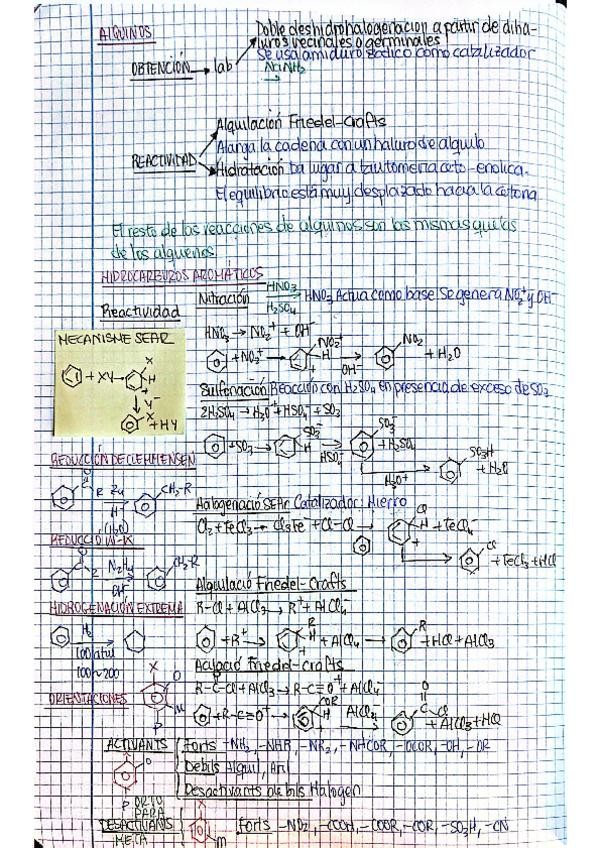 ALQUINOS
Doble deshidrohalogenacion a partir de diha-
luros vecinales o germinales
Se usa amiduro sódico como catalizador
OBTENCIÓN → lab
NaNH₂
→
Alquilación Friedel-Crafts
Alarga la cadena con un haluro de alquilo
REACTIVIDAD
Hidratación Da lugar a tautomería ceto-enolica.
El equilibrio está muy desplazado hacia la cetona
El resto de las reacciones de alquinos son las mismas que las
de los alquenos
HIDROCARBUROS AROMÁTICOS
Nitración HNO₃ H₂SO₄ → HNO₃ Actua como base. Se genera NO₂⁺ y OH⁻
Reactividad
HNO₃ → NO₂⁺ + OH⁻
MECANISME SEAR
+ NO₂⁺ → NO₂⁺ H → OH⁻ NO₂ + H₂O
+ XY → X H +
↓ Y⁻
X + HY
Sulfonación Reacción con H₂SO₄ en presencia de exceso de SO₃
2H₂SO₄ → H₃O⁺ + HSO₄⁻ + SO₃
+ SO₃ → SO₃⁻ H → HSO₄⁻ SO₃⁻ + H₂SO₄
H₃O⁺ → SO₃H + H₂O
REDUCCIÓN DE CLEMMENSEN
R Zn H⁺ → CH₂-R
(H₂O)
Halogenació SEAr Catalizador: Hierro
Cl₂ + FeCl₃ → Cl₃Fe⁻ + Cl-Cl → Cl H + FeCl₄⁻
→ Cl + FeCl₃ + HCl
N₂H₄ OH⁻ → CH₂-R
Alquilació Friedel-Crafts
HIDROGENACIÓN EXTREMA
R-Cl + AlCl₃ → R⁺ + AlCl₄⁻
H₂ → 100 atm
100~200
+ R⁺ → R H + AlCl₄ → R + HCl + AlCl₃
Acilació Friedel-Crafts
R-C-Cl + AlCl₃ → R-C≡O⁺ + AlCl₄⁻
ORIENTACIONES
X O M P
+ R-C≡O⁺ → COR H AlCl₄⁻ → O C + AlCl₃ + HCl
ACTIVANTS Forts -NH₂, -NHR, -NR₂, -NHCOR, -OCOR, -OH, -OR
Debils Alquil, Aril
Desactivants debils Halogen
O
P ORTO
PARA
DESACTIVANTS Forts -NO₂, -COOH, -COOR, -COR, -SO₃H, -CN
META
X m